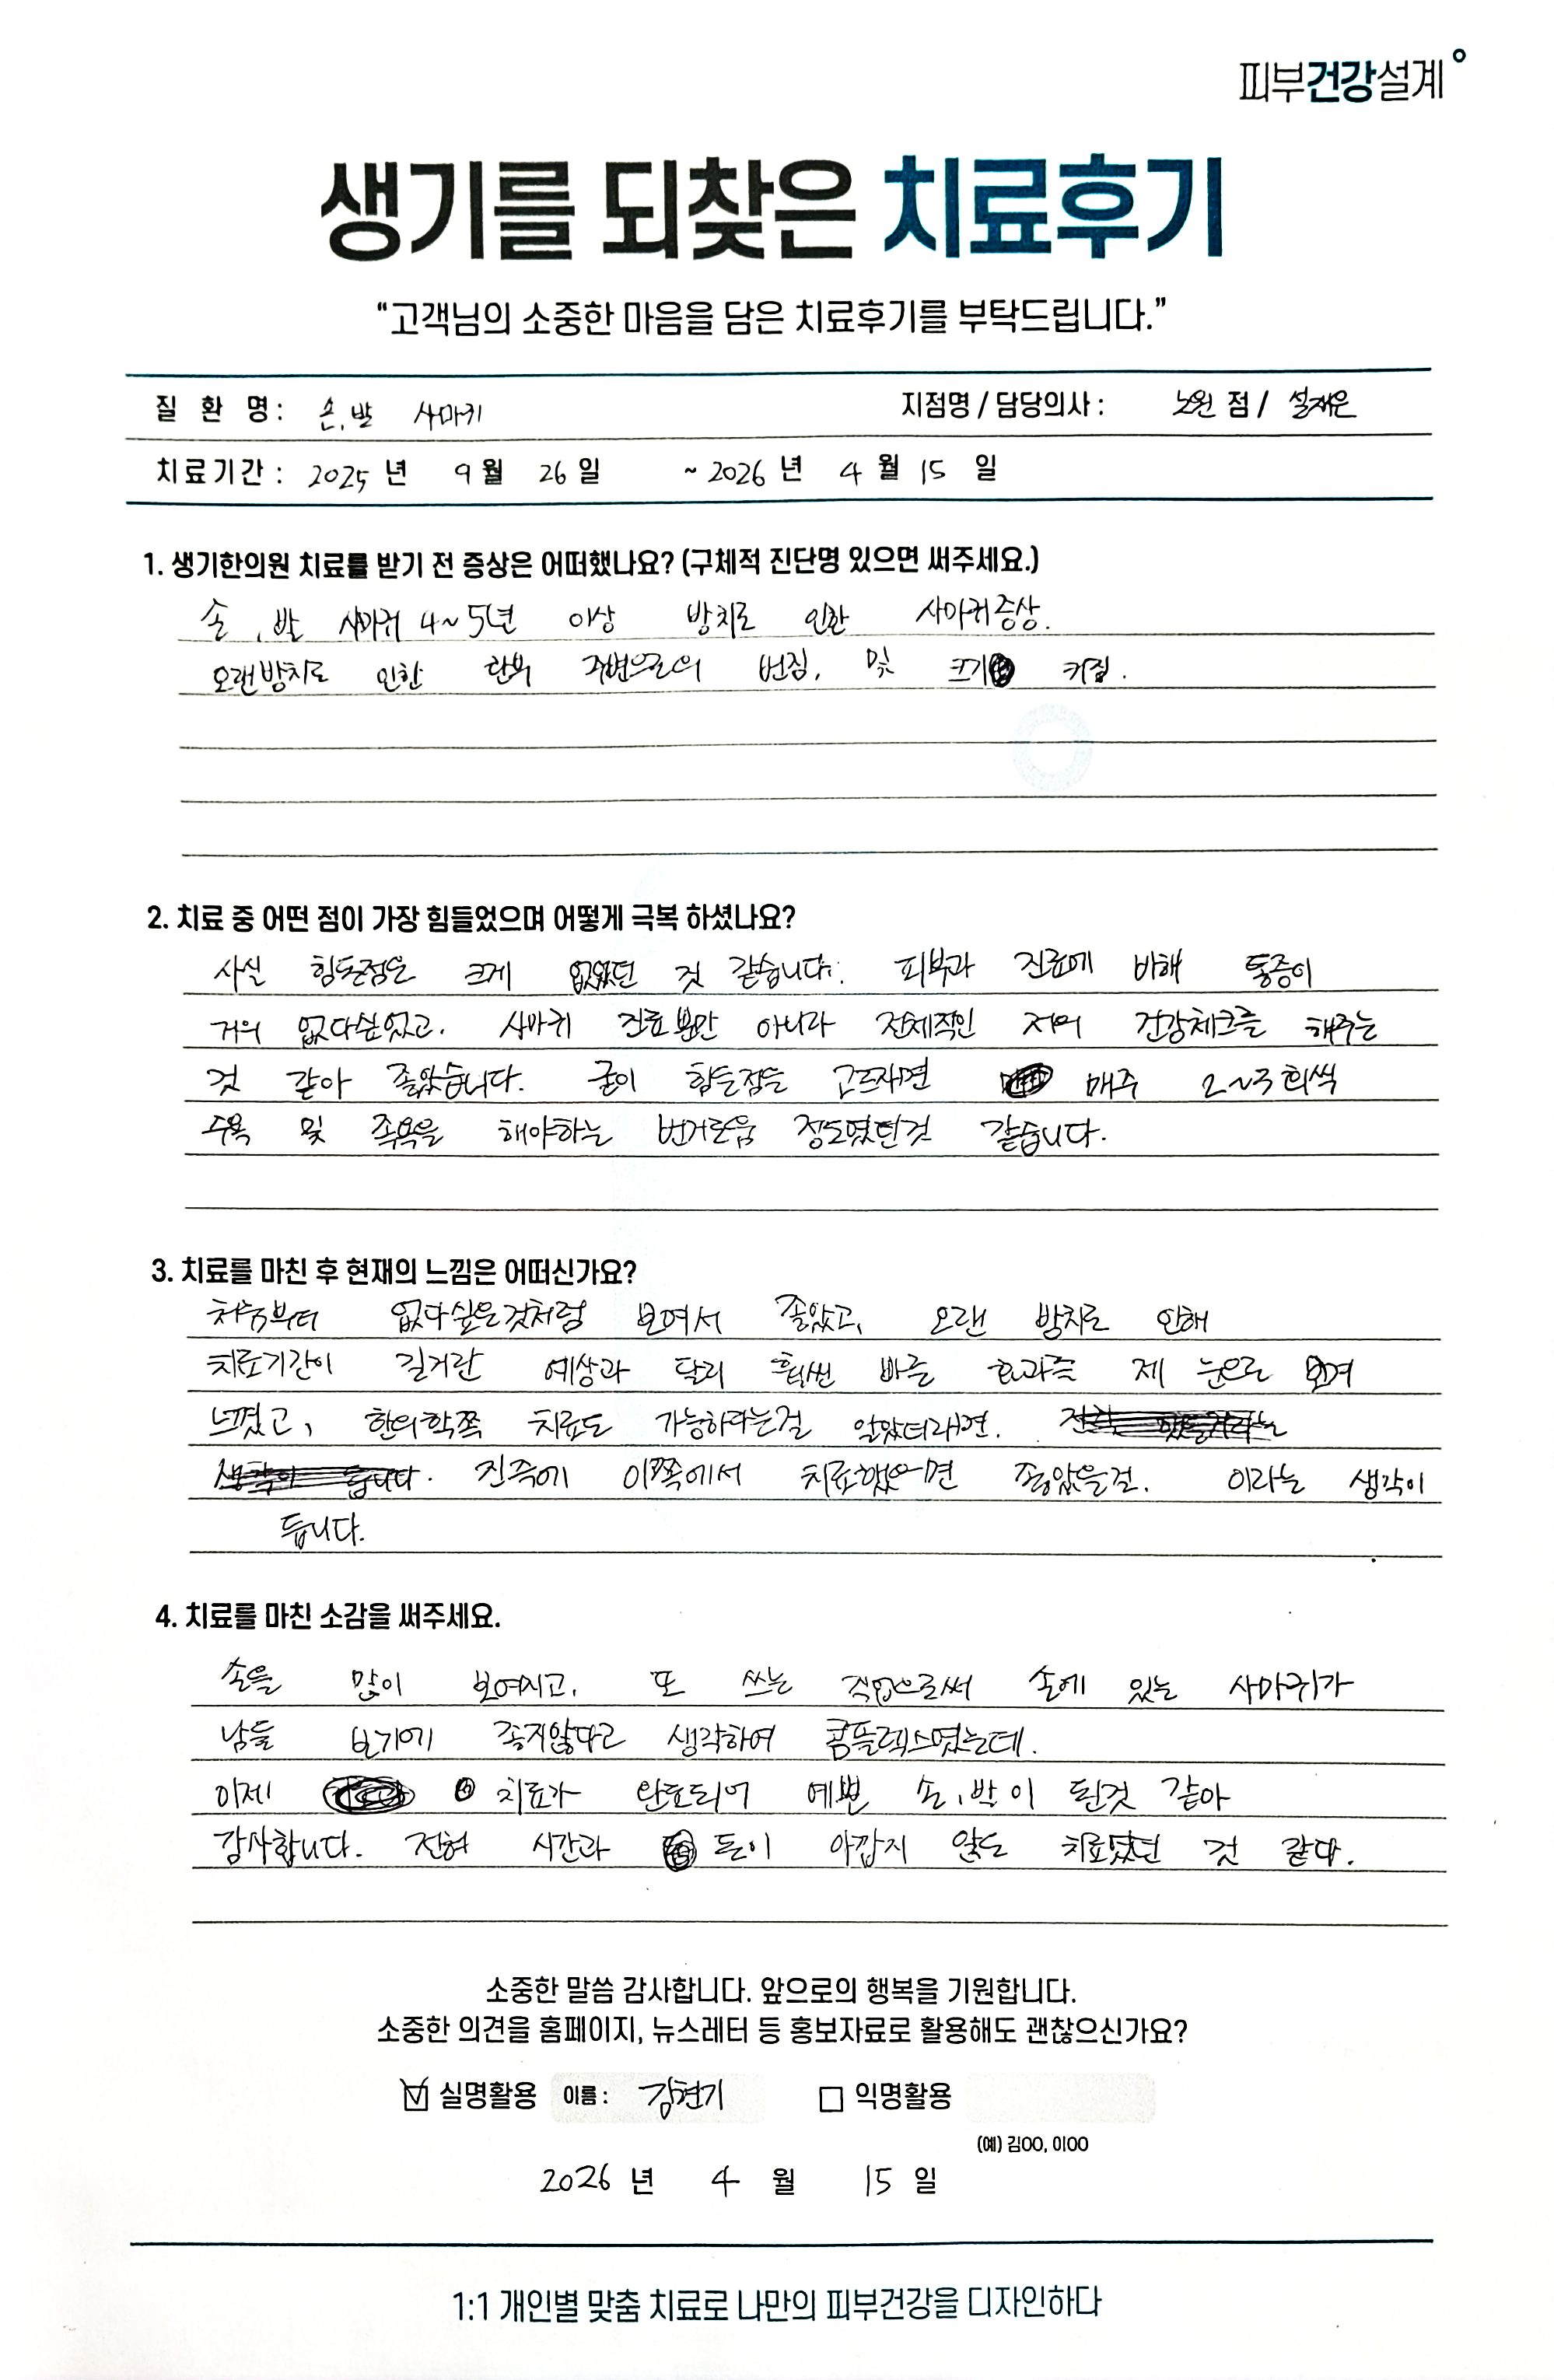 피부건강설계
생기를 되찾은 치료후기
“고객님의 소중한 마음을 담은 치료후기를 부탁드립니다.”
질 환 명 : 손, 발 사마귀 지점명 / 담당의사 : 노원 점 / 설재은
치료기간 : 2025 년 9 월 26 일 ~ 2026 년 4 월 15 일
1. 생기한의원 치료를 받기 전 증상은 어떠했나요? (구체적 진단명 있으면 써주세요.)
손, 발 사마귀 4~5년 이상 방치로 인한 사마귀증상.
오랜방치로 인한 환부 주변으로의 번짐, 및 크기 커짐.
2. 치료 중 어떤 점이 가장 힘들었으며 어떻게 극복 하셨나요?
사실 힘든점은 크게 없었던 것 같습니다. 피부과 진료에 비해 통증이
거의 없다싶었고. 사마귀 진료뿐만 아니라 전체적인 저의 건강체크를 해주는
것 같아 좋았습니다. 굳이 힘든점을 고르자면 매주 2~3회씩
수욕 및 족욕을 해야하는 번거로움 정도였던것 같습니다.
3. 치료를 마친 후 현재의 느낌은 어떠신가요?
처음부터 없다싶은것처럼 보여서 좋았고, 오랜 방치로 인해
치료기간이 길거란 예상과 달리 훨씬 빠른 효과를 제 눈으로 보여
느꼈고, 한의학쪽 치료도 가능하다는걸 알았더라면.
진즉에 이쪽에서 치료했으면 좋았을걸. 이라는 생각이
듭니다.
4. 치료를 마친 소감을 써주세요.
손을 많이 보여지고, 또 쓰는 직업으로써 손에 있는 사마귀가
남들 보기에 좋지않다고 생각하여 콤플렉스였는데.
이제 치료가 완료되어 예쁜 손, 발이 된것 같아
감사합니다. 전혀 시간과 돈이 아깝지 않은 치료였던 것 같다.
소중한 말씀 감사합니다. 앞으로의 행복을 기원합니다.
소중한 의견을 홈페이지, 뉴스레터 등 홍보자료로 활용해도 괜찮으신가요?
실명활용 이름 : 김현기 익명활용
(예) 김OO, 이OO
2026 년 4 월 15 일
1:1 개인별 맞춤 치료로 나만의 피부건강을 디자인하다